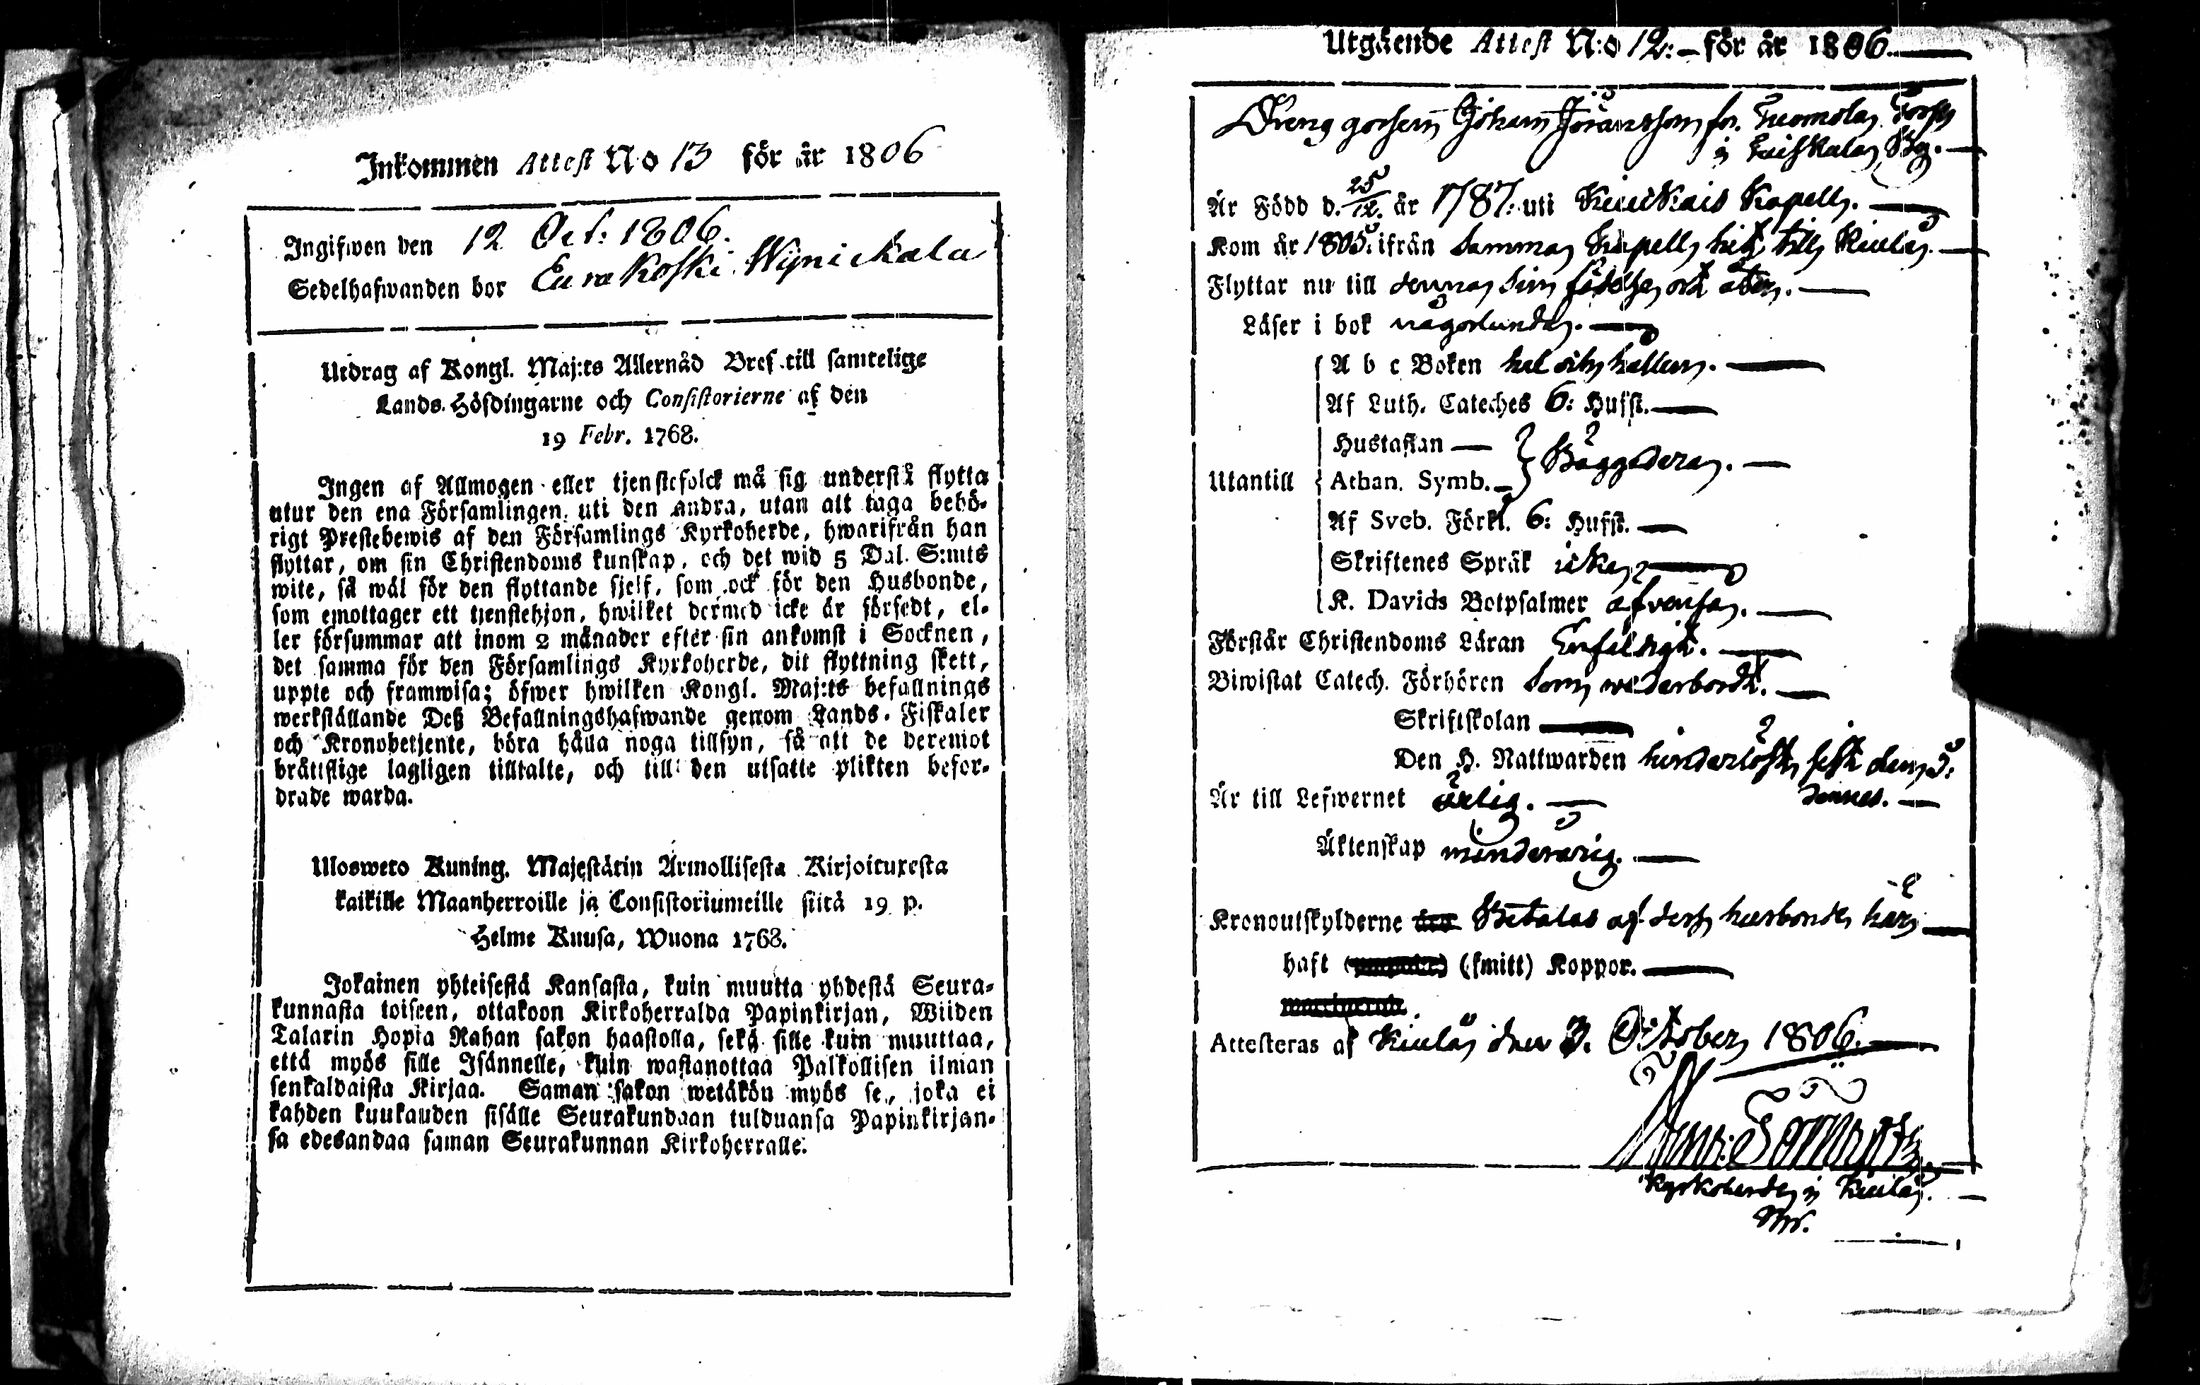 Inkommen Attest No 13 för år 1806
Ingifwen den 12 Oct: 1806.
Sedelhafwanden bor Eurakoski Wijnickala
Utdrag af Kongl. Maj:ts Allernåd Bref till samtelige
Lands-Höfdingarne och Consistorierne af den
19 Febr. 1768.
Ingen af Allmogen eller tjenstefolck må sig understå flytta
utur den ena Församlingen uti den andra, utan att taga behö-
rigt Prestebewis af den Församlings Kyrkoherde, hwarifrån han
flyttar, om sin Christendoms kunskap, och det wid 5 Dal. S:mts
wite, så wäl för den flyttande sjelf, som ock för den Husbonde,
som emottager ett tjenstehjon, hwilket dermed icke är försedt, el-
ler försummar att inom 2 månader efter sin ankomst i Socknen,
det samma för den Församlings Kyrkoherde, dit flyttning skett,
uppte och framwisa; öfwer hwilken Kongl. Maj:ts befallnings
werkställande Deß Befallningshafwande genom Lands-Fiskaler
och Kronobetjente, böra hålla noga tillsyn, så att de deremot
bråttslige lagligen tilltalte, och till den utsatte plikten befor-
drade warda.
Ulosweto Kuning. Majestätin Armollisesta Kirjoituxesta
kaikille Maanherroille ja Consistoriumeille siitä 19 p.
Helme Kuusa, Wuona 1768.
Jokainen yhteisestä Kansasta, kuin muutta yhdestä Seura-
kunnasta toiseen, ottakoon Kirkoherralda Papinkirjan, Wiiden
Talarin Hopia Rahan sakon haastolla, sekä sille kuin muuttaa,
että myös sille Isännelle, kuin wastanottaa Palkollisen ilman
senkaldaista Kirjaa. Saman sakon wetäkön myös se, joka ei
kahden kuukauden sisälle Seurakundaan tulduansa Papinkirjan-
sa edesandaa saman Seurakunnan Kirkoherralle.
Utgående Attest N:o 12: för år 1806.
Dreng gossen Johan Jöransson fr. Tuomola Torp
i Kuiskala By.
Är Född d. 25/12. år 1787. uti Kiukais Kapell.
Kom år 1805. ifrån Samma Kapell hit till Kiula.
Flyttar nu till denna sin födelse ort åter.
Läser i bok någorlunda.
A b c Boken hel och hållen.
Af Luth. Cateches 6: Hufst.
Hustaflan
Utantill Athan. Symb. Bäggedera.
Af Sveb. Förkl. 6: Hufst.
Skriftenes Språk icke
K. Davids Botpsalmer afvensa.
Förstår Christendoms Läran Enfaldigt.
Biwistat Catech. Förhören Som wederbordt.
Skriftskolan
Den H. Nattwarden hinderlöst, sist den 5:
dennes.
Är till Lefwernet ärlig.
Äktenskap minderårig.
Kronoutskylderne Betalas af dess husbonde här
haft (smitt) Koppor.
Attesteras af Kiula den 3. October 1806.
Kyrkoherde i Kiula.